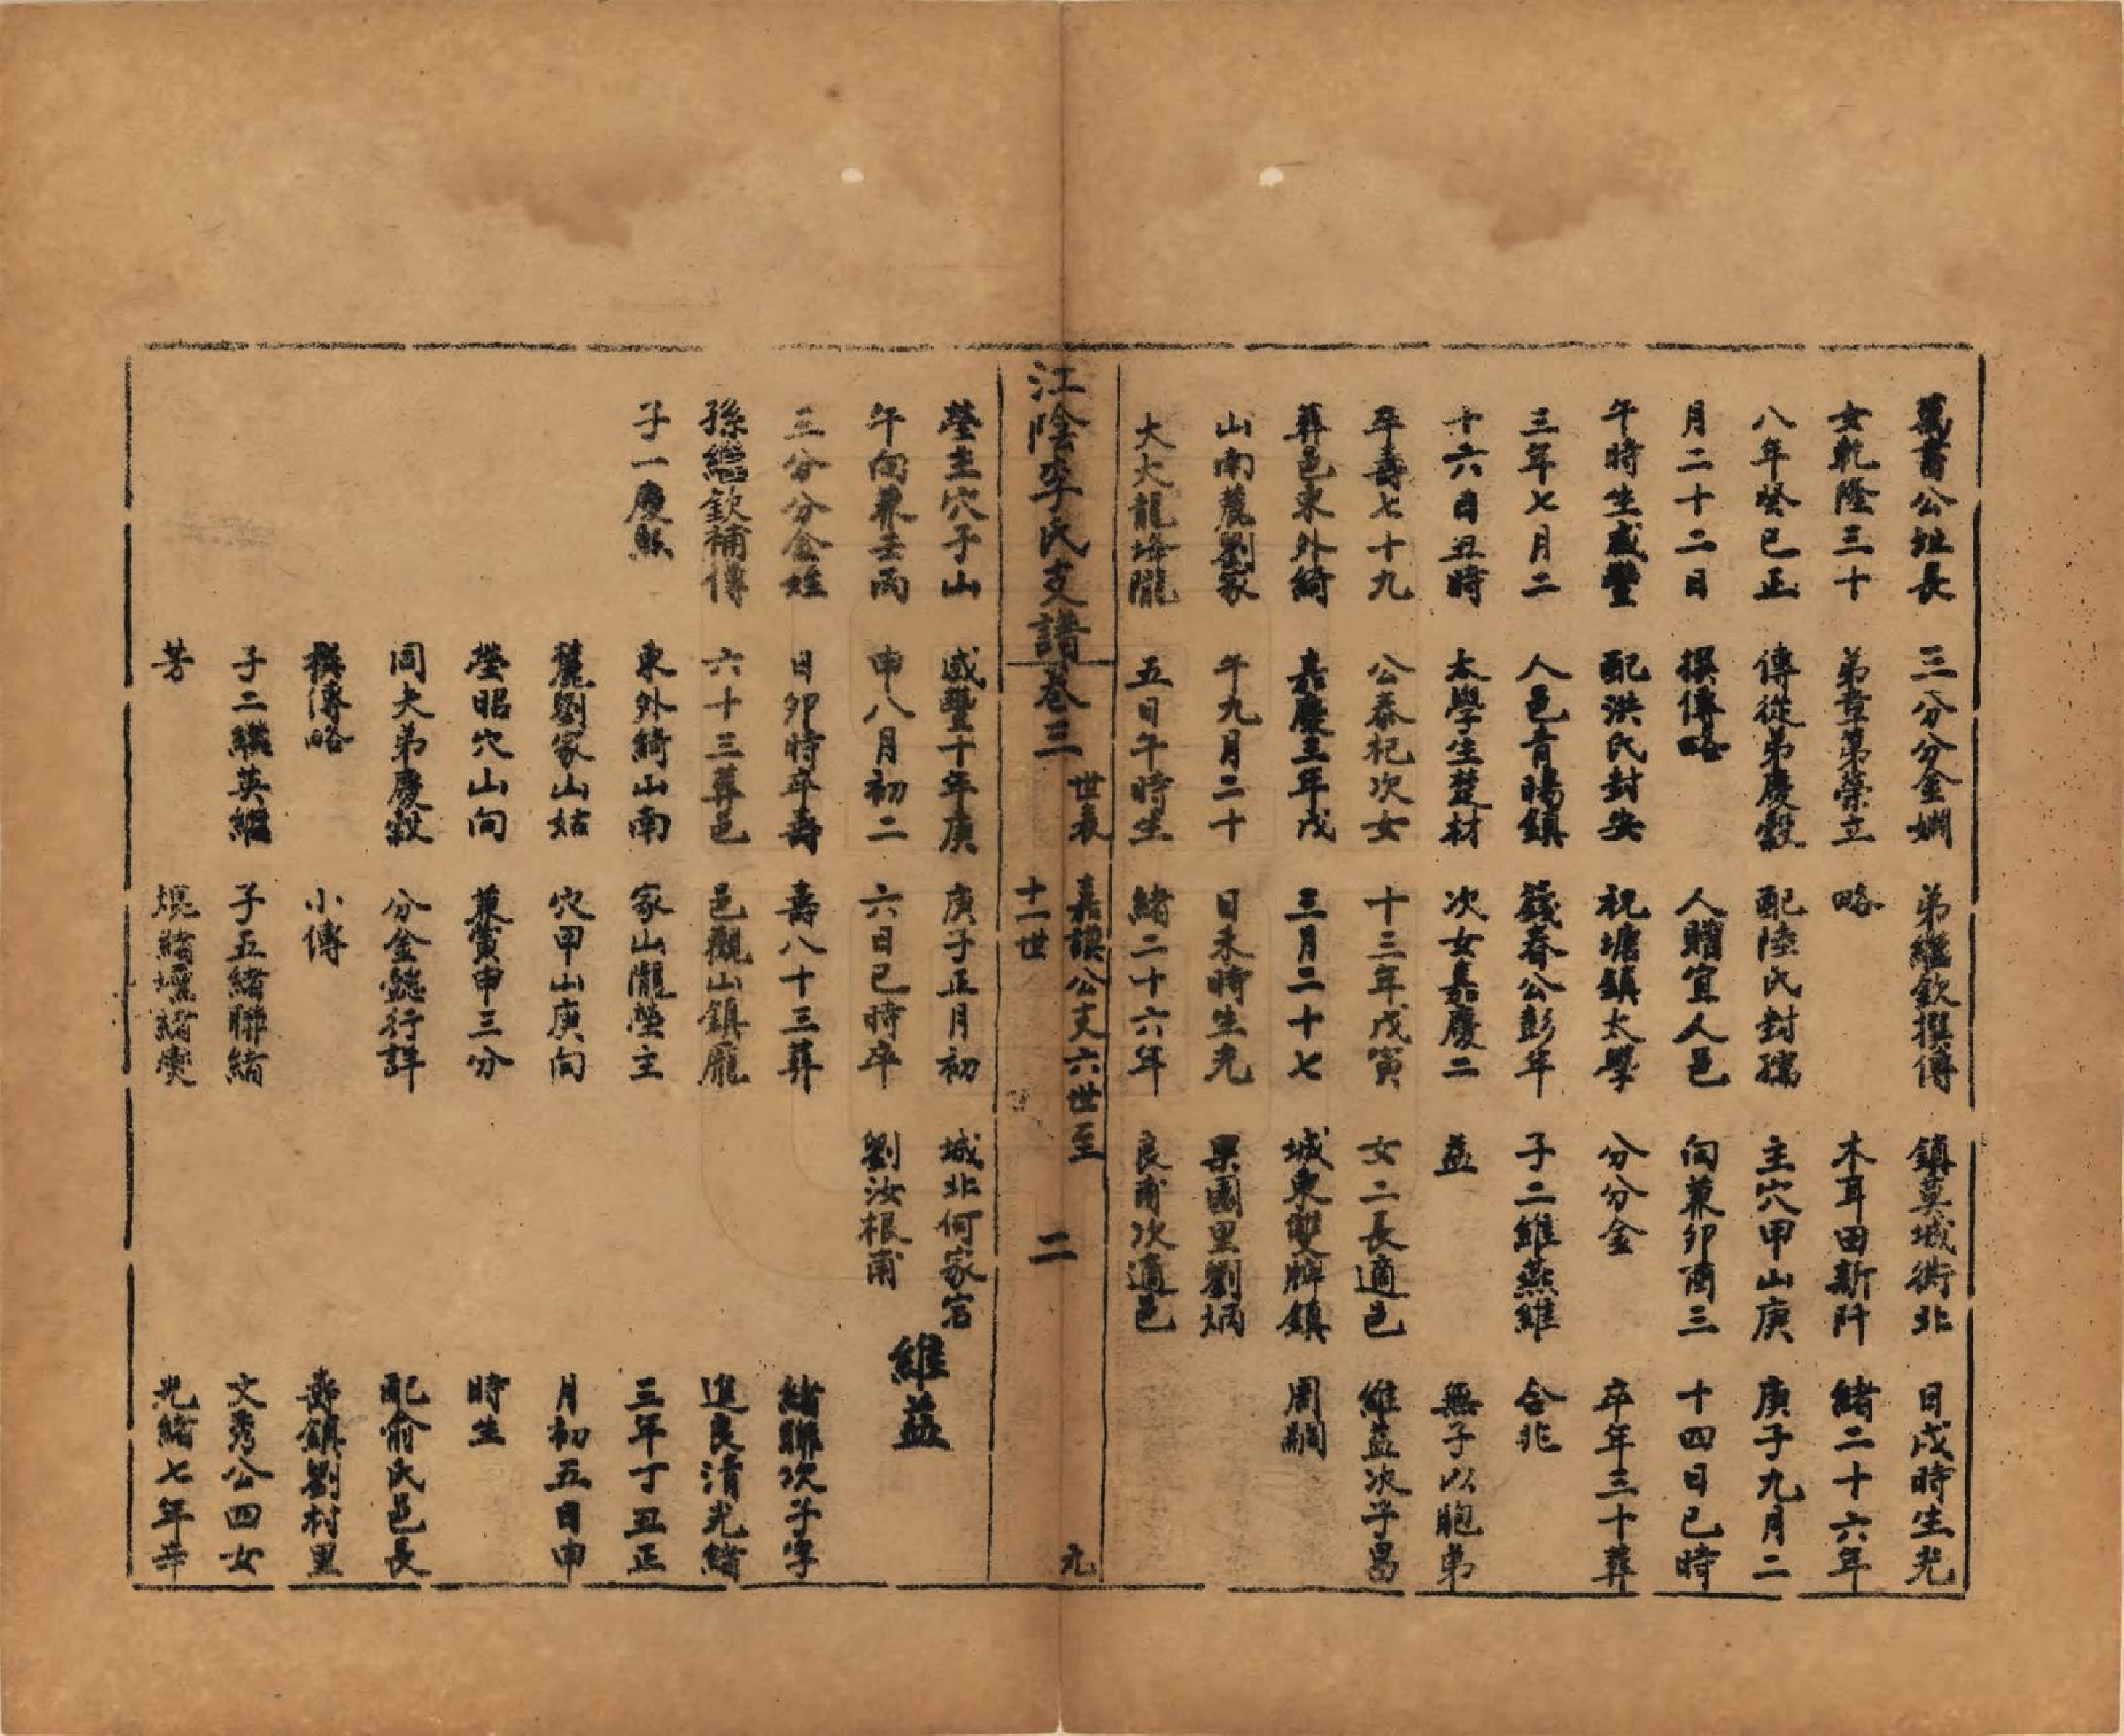 萬青公姪長
女乾隆三十
八年癸巳正
月二十二日
午時生咸豐
三年七月二
十六日丑時
卒壽七十九
葬邑東外綺
山南麓劉家
大大龍峰隴
三分分金嫻
弟章第榮立
傳從弟慶穀
撰傳略
配洪氏封安
人邑青暘鎮
太學生楚材
公泰杞次女
嘉慶三年戊
午九月二十
五日午時生
弟繼欽撰傳
略
配陸氏封孺
人贈宜人邑
祝塘鎮太學
籛春公彭年
次女嘉慶二
十三年戊寅
三月二十七
日未時生光
緒二十六年
鎮莫城街北
木耳田新阡
主穴甲山庚
向兼卯酉三
分分金
子二維燕維
益
女二長適邑
城東雙牌鎮
果園里劉炳
良甫次適邑
日戌時生光
緒二十六年
庚子九月二
十四日巳時
卒年三十葬
合兆
無子以胞弟
維益次子昌
周嗣
江陰李氏支譜
卷三
世表
嘉謨公支六世至
十一世
二
九
塋主穴子山
午向兼壬丙
三分分金姪
孫繼欽補傳
子一慶熙
咸豐十年庚
申八月初二
日卯時卒壽
六十三葬邑
東外綺山南
麓劉家山姑
塋昭穴山向
同大弟慶穀
撰傳略
子二繼英繼
芳
庚子正月初
六日巳時卒
壽八十三葬
邑觀山鎮龐
家山隴塋主
穴甲山庚向
兼寅申三分
分金懿行詳
小傳
子五緒聯緒
焜緒壥緒奕
城北何家宕
劉汝根甫
維益
緒聯次子字
進良清光緒
三年丁丑正
月初五日申
時生
配俞氏邑長
壽鎮劉村里
文秀公四女
光緒七年辛